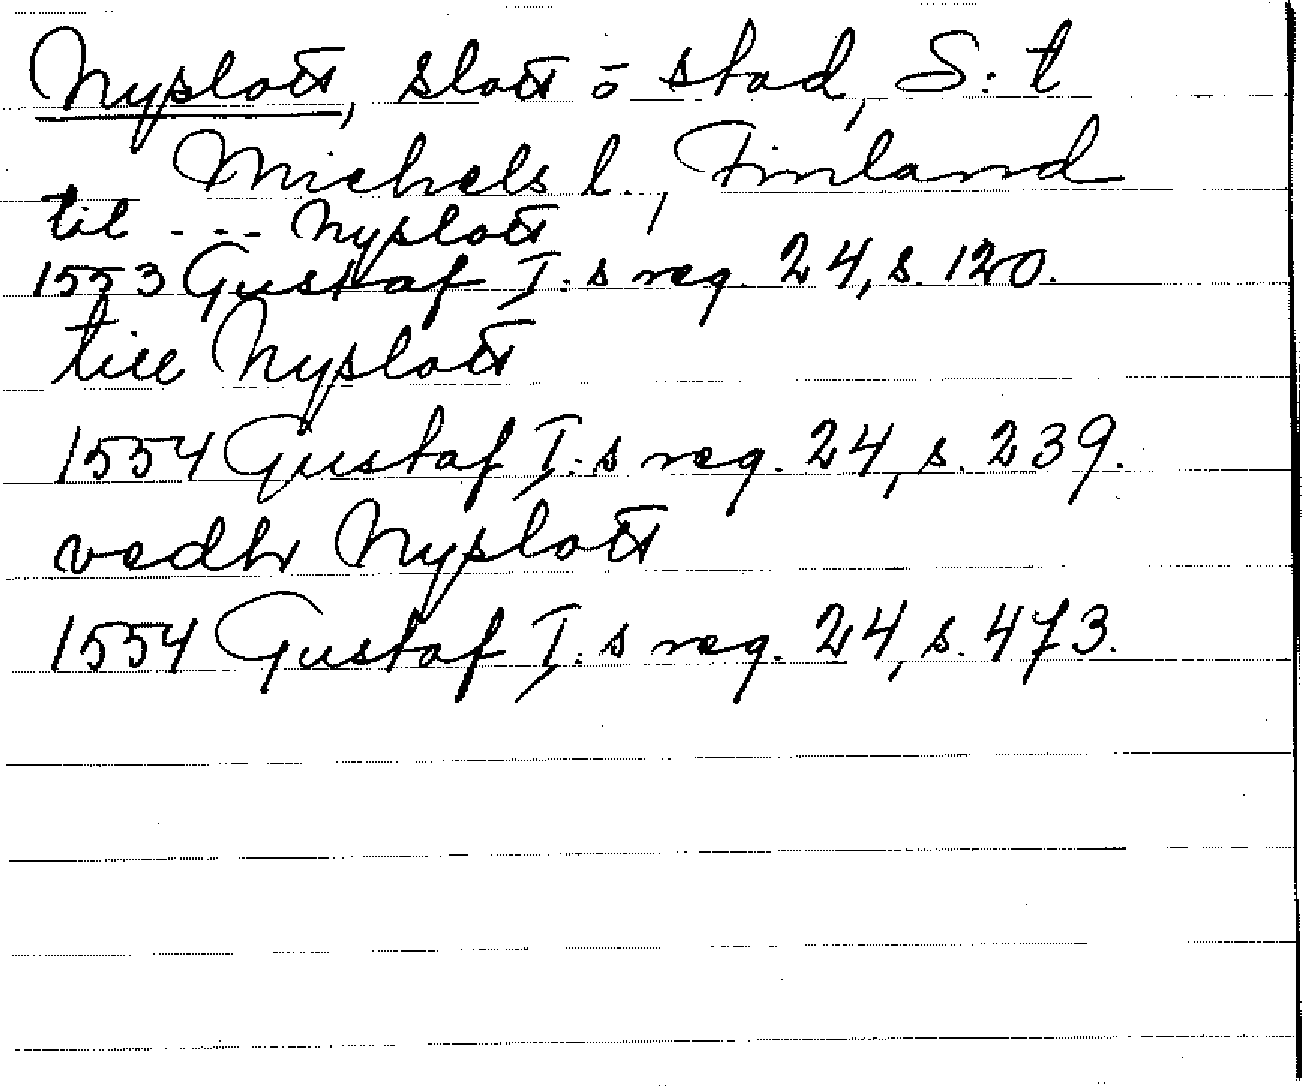 Nyslott, slott o stad, S:t
Michels l., Finland
til --- Nyslott
1553 Gustaf I:s reg. 24, s. 120.
till Nyslott
1554 Gustaf I:s reg. 24, s. 239.
vedh Nyslott
1554 Gustaf I:s reg. 24, s. 473.